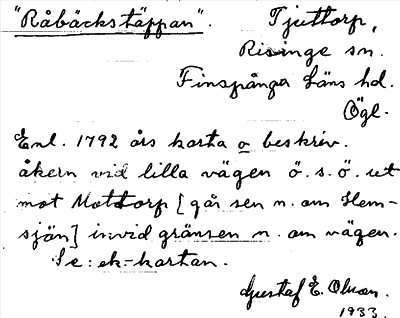 "Råbäckstäppan". Tjuttorp,
Risinge sn.
Finspånga Läns hd.
Ögl.
Enl. 1792 års karta o beskriv.
åkern vid lilla vägen ö. s. ö. ut
mot Mottorp [går sen n. om Hem-
sjön] invid gränsen n. om vägen.
Se: ek-kartan.
Gustaf E. Olson.
1933.